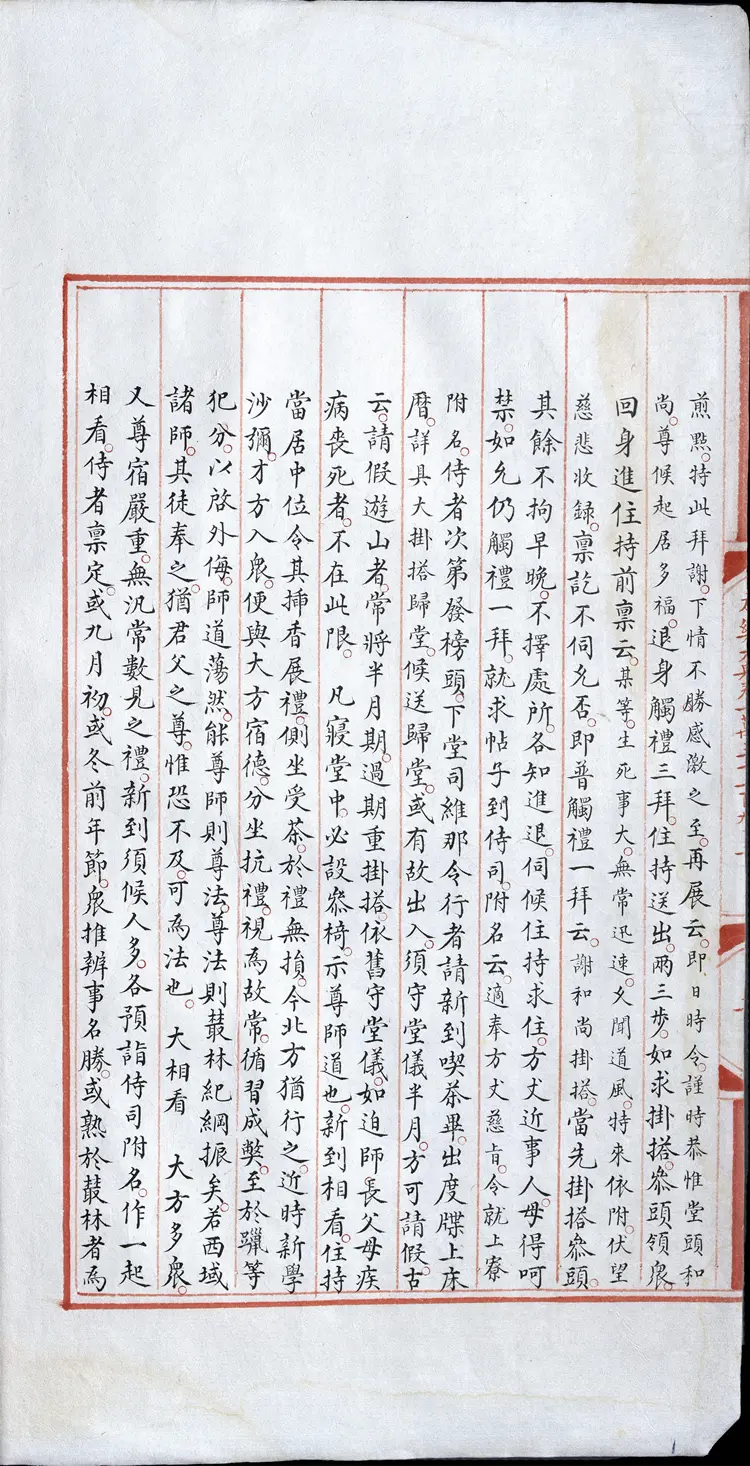 煎點。特此拜謝。下情不勝感激之至。再展云。即日時令。謹時恭惟堂頭和
尚。尊候起居多福。退身觸禮三拜。住持送出。兩三步。如求掛搭。叅頭領衆。
回身進住持前稟云。某等。生死事大。無常迅速。久聞道風。特來依附。伏望
慈悲收録。稟訖不伺允否。即普觸禮一拜云。謝和尚掛搭。當先掛搭叅頭。
其餘不拘早晚。不擇處所。各知進退。伺候住持求住。方丈近事人。毋得呵
禁。如允仍觸禮一拜。就求帖子到侍司。附名云。適奉方丈慈旨。令就上寮
附名。侍者次第發榜頭。下堂司維那令行者請新到喫茶畢。出度牒上床
曆。詳具大掛搭歸堂。候送歸堂。或有故出入。須守堂儀半月。方可請假。古
云。請假遊山者常將半月期。過期重掛搭。依舊守堂儀。如迫師長父母疾
病喪死者。不在此限。 凡寢堂中。必設叅椅。示尊師道也。新到相看。住持
當居中位令其揷香展禮。側坐受茶。於禮無損。今北方猶行之。近時新學
沙彌。才方入衆。便與大方宿德。分坐抗禮。視為故常。循習成獘。至於躐等
犯分。以啓外侮。師道蕩然。能尊師則尊法。尊法則叢林紀綱振矣。若西域
諸師。其徒奉之。猶君父之尊。惟恐不及。可為法也。 大相看 大方多衆。
又尊宿嚴重。無汎常數見之禮。新到須候人多。各預詣侍司附名。作一起
相看。侍者稟定。或九月初。或冬前年節。衆推辦事名勝。或熟於叢林者為